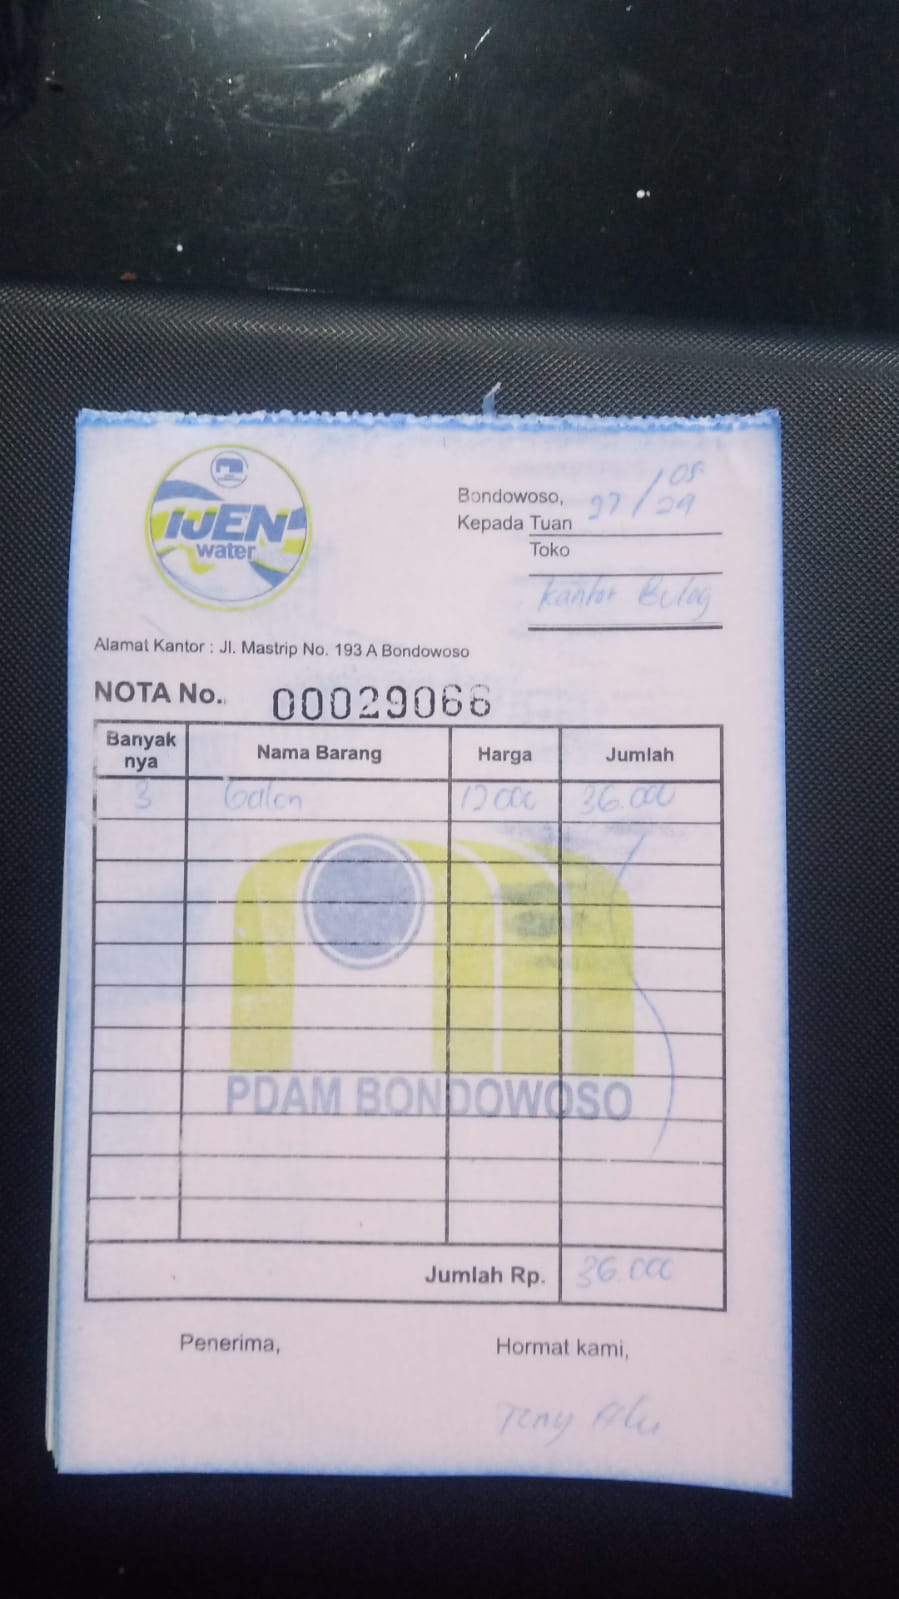 IJEN
water
Bondowoso, 27/05
29
Kepada Tuan
Toko
Kantor Bulog
Alamat Kantor : Jl. Mastrip No. 193 A Bondowoso
NOTA No. 00029066
Banyak nya Nama Barang Harga Jumlah
3 Galon 12000 36.000
PDAM BONDOWOSO
Jumlah Rp. 36.000
Penerima, Hormat kami,
Tony